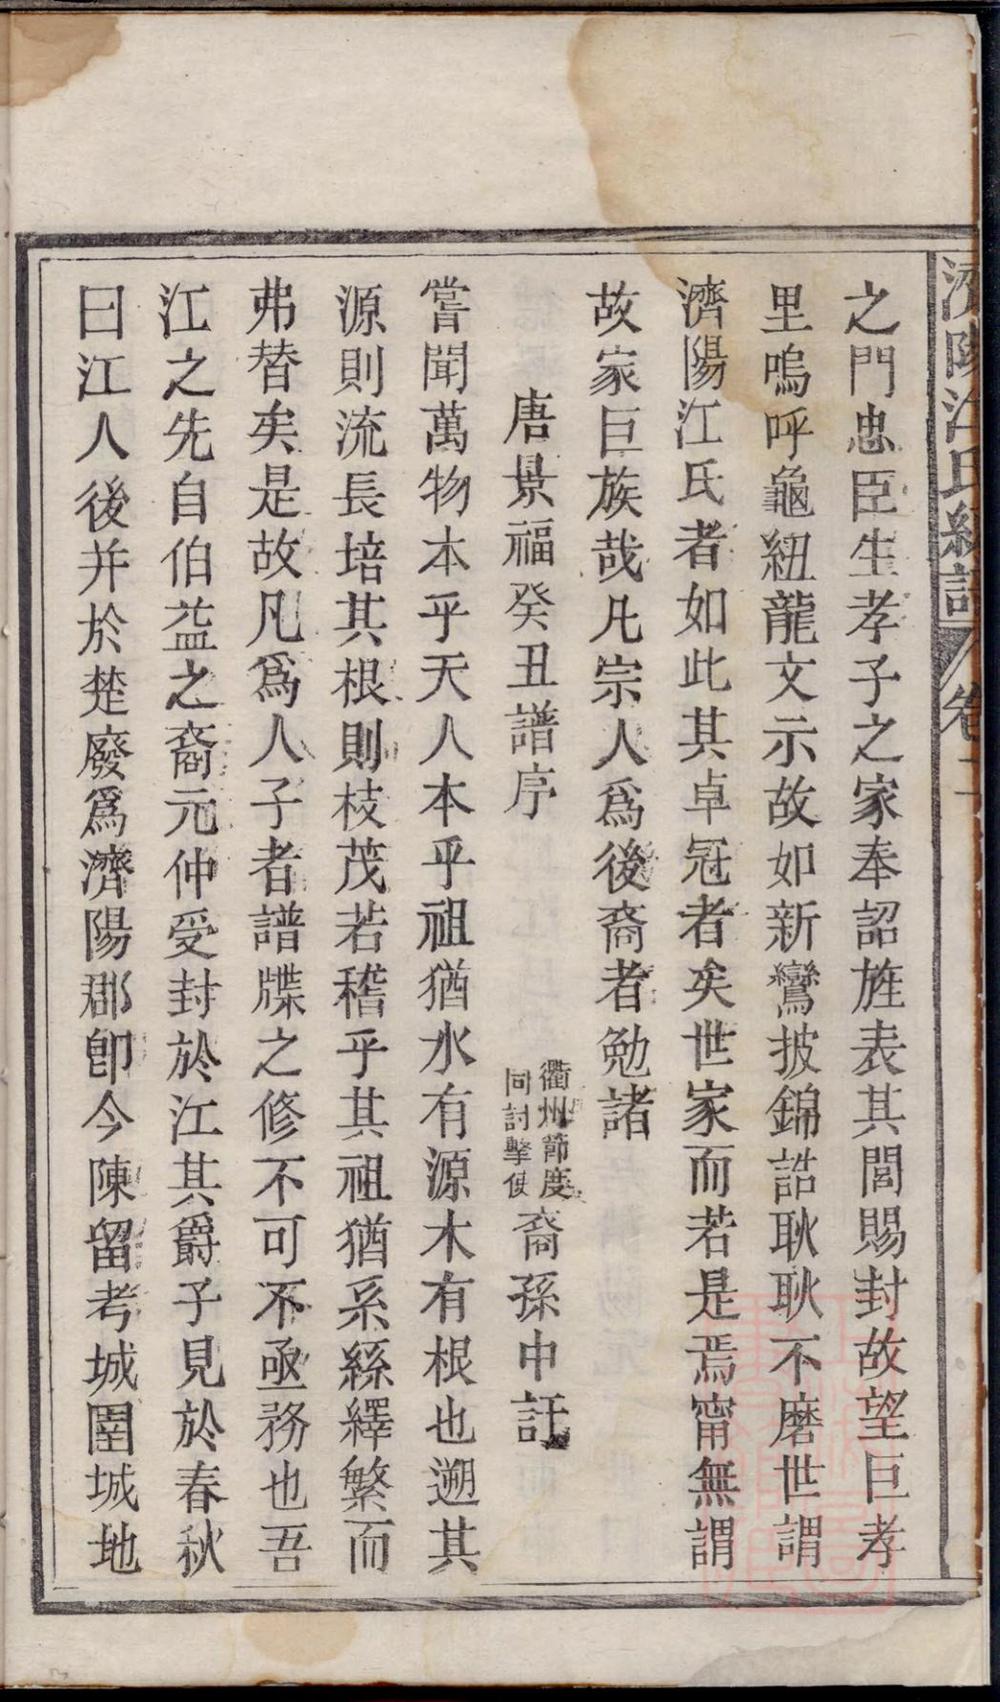 濟陽江氏統譜 卷二
之門忠臣生孝子之家奉詔旌表其閭賜封故望巨孝
里嗚呼龜紐龍文示故如新鸞披錦誥耿耿不磨世謂
濟陽江氏者如此其卓冠者矣世家而若是焉甯無謂
故家巨族哉凡宗人爲後裔者勉諸
唐景福癸丑譜序 衢州節度同討擊使裔孫中訐
嘗聞萬物本乎天人本乎祖猶水有源木有根也遡其
源則流長培其根則枝茂若稽乎其祖猶系絲繹繁而
弗替矣是故凡爲人子者譜牒之修不可不亟務也吾
江之先自伯益之裔元仲受封於江其爵子見於春秋
曰江人後并於楚廢爲濟陽郡卽今陳留考城圉城地